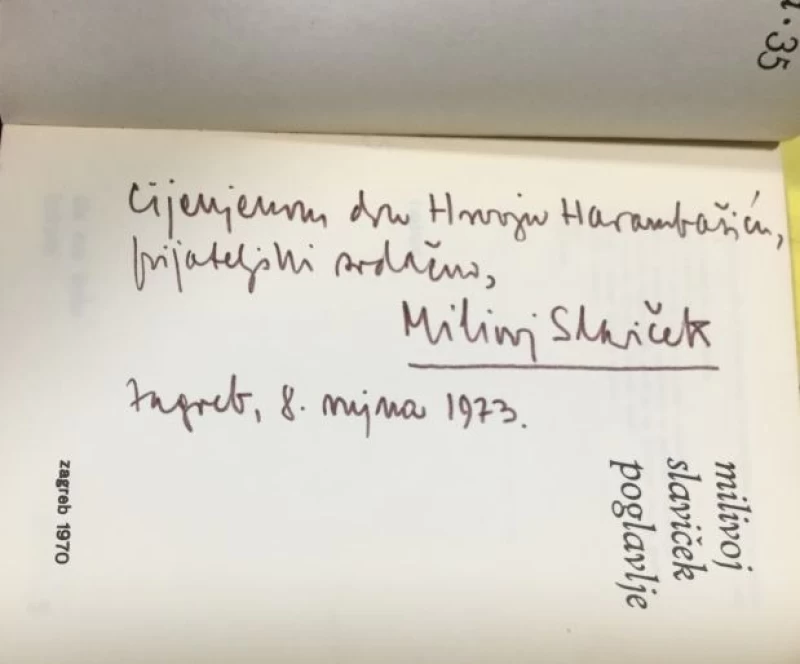 Cijenjenom dru Hrvoju Harambašiću,
prijateljski srdačno,
Milivoj Slaviček
Zagreb, 8. rujna 1973.
milivoj
slaviček
poglavlje
zagreb 1970
35